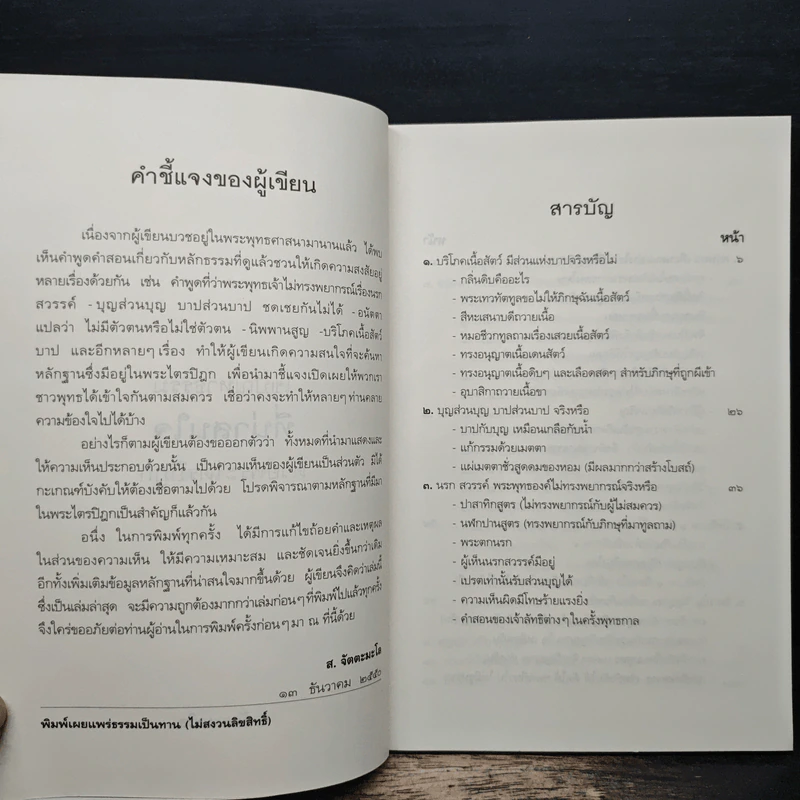 คำชี้แจงของผู้เขียน
เนื่องจากผู้เขียนบวชอยู่ในพระพุทธศาสนามานานแล้ว ได้พบ
เห็นคำพูดคำสอนเกี่ยวกับหลักธรรมที่ดูแล้วชวนให้เกิดความสงสัยอยู่
หลายเรื่องด้วยกัน เช่น คำพูดที่ว่าพระพุทธเจ้าไม่ทรงพยากรณ์เรื่องนรก
สวรรค์ -บุญส่วนบุญ บาปส่วนบาป ชดเชยกันไม่ได้ -อนัตตา
แปลว่า ไม่มีตัวตนหรือไม่ใช่ตัวตน -นิพพานสูญ -บริโภคเนื้อสัตว์
บาป และอีกหลายๆ เรื่อง ทำให้ผู้เขียนเกิดความสนใจที่จะค้นหา
หลักฐานซึ่งมีอยู่ในพระไตรปิฎก เพื่อนำมาชี้แจงเปิดเผยให้พวกเรา
ชาวพุทธได้เข้าใจกันตามสมควร เชื่อว่าคงจะทำให้หลายๆ ท่านคลาย
ความข้องใจไปได้บ้าง
อย่างไรก็ตามผู้เขียนต้องขอออกตัวว่า ทั้งหมดที่นำมาแสดงและ
ให้ความเห็นประกอบด้วยนั้น เป็นความเห็นของผู้เขียนเป็นส่วนตัว มิได้
กะเกณฑ์บังคับให้ต้องเชื่อตามไปด้วย โปรดพิจารณาตามหลักฐานที่มีมา
ในพระไตรปิฎกเป็นสำคัญก็แล้วกัน
อนึ่ง ในการพิมพ์ทุกครั้ง ได้มีการแก้ไขถ้อยคำและเหตุผล
ในส่วนของความเห็น ให้มีความเหมาะสม และชัดเจนยิ่งขึ้นกว่าเดิม
อีกทั้งเพิ่มเติมข้อมูลหลักฐานที่น่าสนใจมากขึ้นด้วย ผู้เขียนจึงคิดว่าเล่มนี้
ซึ่งเป็นเล่มล่าสุด จะมีความถูกต้องมากกว่าเล่มก่อนๆ ที่พิมพ์ไปแล้วทุกครั้ง
จึงใคร่ขออภัยต่อท่านผู้อ่านในการพิมพ์ครั้งก่อนๆ มา ณ ที่นี้ด้วย
ส. จัตตะมะโล
๑๓ ธันวาคม ๒๕๕๐
พิมพ์เผยแพร่ธรรมเป็นทาน (ไม่สงวนลิขสิทธิ์)
สารบัญ
หน้า
๑. บริโภคเนื้อสัตว์ มีส่วนแห่งบาปจริงหรือไม่ ๖
- กลิ่นดิบคืออะไร
- พระเทวทัตทูลขอไม่ให้ภิกษุฉันเนื้อสัตว์
- สีหะเสนาบดีถวายเนื้อ
- หมอชีวกทูลถามเรื่องเสวยเนื้อสัตว์
- ทรงอนุญาตเนื้อเดนสัตว์
- ทรงอนุญาตเนื้อดิบๆ และเลือดสดๆ สำหรับภิกษุที่ถูกผีเข้า
- อุบาสิกาถวายเนื้อขา
๒. บุญส่วนบุญ บาปส่วนบาป จริงหรือ ๒๖
- บาปกับบุญ เหมือนเกลือกับน้ำ
- แก้กรรมด้วยเมตตา
- แผ่เมตตาชั่วสูดดมของหอม (มีผลมากกว่าสร้างโบสถ์)
๓. นรก สวรรค์ พระพุทธองค์ไม่ทรงพยากรณ์จริงหรือ ๓๖
- ปาสาทิกสูตร (ไม่ทรงพยากรณ์กับผู้ไม่สมควร)
- นฬกปานสูตร (ทรงพยากรณ์กับภิกษุที่มาทูลถาม)
- พระตกนรก
- ผู้เห็นนรกสวรรค์มีอยู่
- เปรตเท่านั้นรับส่วนบุญได้
- ความเห็นผิดมีโทษร้ายแรงยิ่ง
- คำสอนของเจ้าลัทธิต่างๆ ในครั้งพุทธกาล